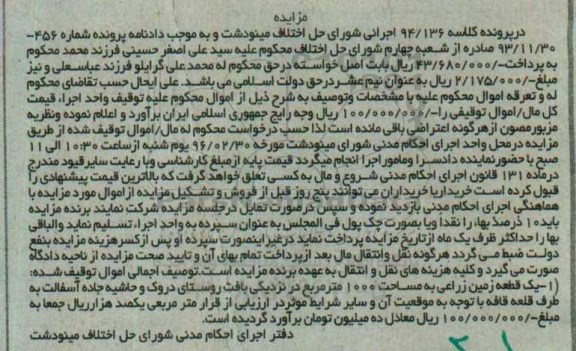 مزایده
درپرونده کلاسه ۹۴/۱۳۶ اجرائی شورای حل اختلاف مینودشت و به موجب دادنامه پرونده شماره ۴۵۶-
۹۳/۱۱/۳۰ صادره از شعبه چهارم شورای حل اختلاف محکوم علیه سید علی اصغر حسینی فرزند محمد محکوم
به پرداخت-/۴۳/۶۸۰/۰۰۰ ریال بابت اصل خواسته درحق محکوم له محمد علی گرایلو فرزند عباسعلی و نیز
مبلغ-/۲/۱۷۵/۰۰۰ ریال به عنوان نیم عشر درحق دولت اسلامی می باشد. علی ایحال حسب تقاضای محکوم
له و تعرفه اموال محکوم علیه با مشخصات وتوصیف به شرح ذیل از اموال محکوم علیه توقیف واحد اجرا، قیمت
کل مال/اموال توقیفی را-/۱۰۰/۰۰۰/۰۰۰ ریال وجه رایج جمهوری اسلامی ایران برآورد و اعلام نموده ونظریه
مزبور مصون ازهرگونه اعتراضی باقی مانده است لذا حسب درخواست محکوم له مال/اموال توقیف شده از طریق
مزایده درمحل واحد اجرای احکام مدنی شورای مینودشت مورخه ۹۶/۰۲/۳۰ یوم شنبه ازساعت ۱۰:۳۰ الی ۱۱
صبح با حضورنماینده دادسرا ومامور اجرا انجام میگردد قیمت پایه ازمبلغ کارشناسی وبا رعایت سایر قیود مندرج
درماده ۱۳۱ قانون اجرای احکام مدنی شروع و مال به کسی تعلق خواهد گرفت که بالاترین قیمت پیشنهادی را
قبول کرده است خریدار یا خریداران می توانند پنج روز قبل از فروش و تشکیل مزایده از اموال مورد مزایده با
هماهنگی اجرای احکام مدنی بازدید نموده و سپس درصورت تمایل درجلسه مزایده شرکت نمایند برنده مزایده
باید ۱۰ درصد بها، را نقدا ویا بصورت چک پول فی المجلس به عنوان سپرده به واحد اجرا، تسلیم نماید والباقی
بها را حداکثر ظرف یک ماه ازتاریخ مزایده پرداخت نماید درغیر اینصورت سپرده او پس ازکسر هزینه مزایده بنفع
دولت ضبط می گردد هرگونه نقل وانتقال مال بعد ازپرداخت تمام بهای آن و تایید صحت مزایده از ناحیه دادگاه
صورت می گیرد و کلیه هزینه های نقل و انتقال به عهده برنده مزایده است. توصیف اجمالی اموال توقیف شده:
(۱-یک قطعه زمین زراعی به مساحت ۱۰۰۰ مترمربع در نزدیکی بافت روستای دروک و حاشیه جاده آسفالت به
طرف قلعه قافه با توجه به موقعیت آن و سایر شرایط موثردر ارزیابی از قرار متر مربعی یکصد هزارریال جمعا به
مبلغ-/۱۰۰/۰۰۰/۰۰۰ ریال معادل ده میلیون تومان برآورد گردیده است.
دفتر اجرای احکام مدنی شورای حل اختلاف مینودشت